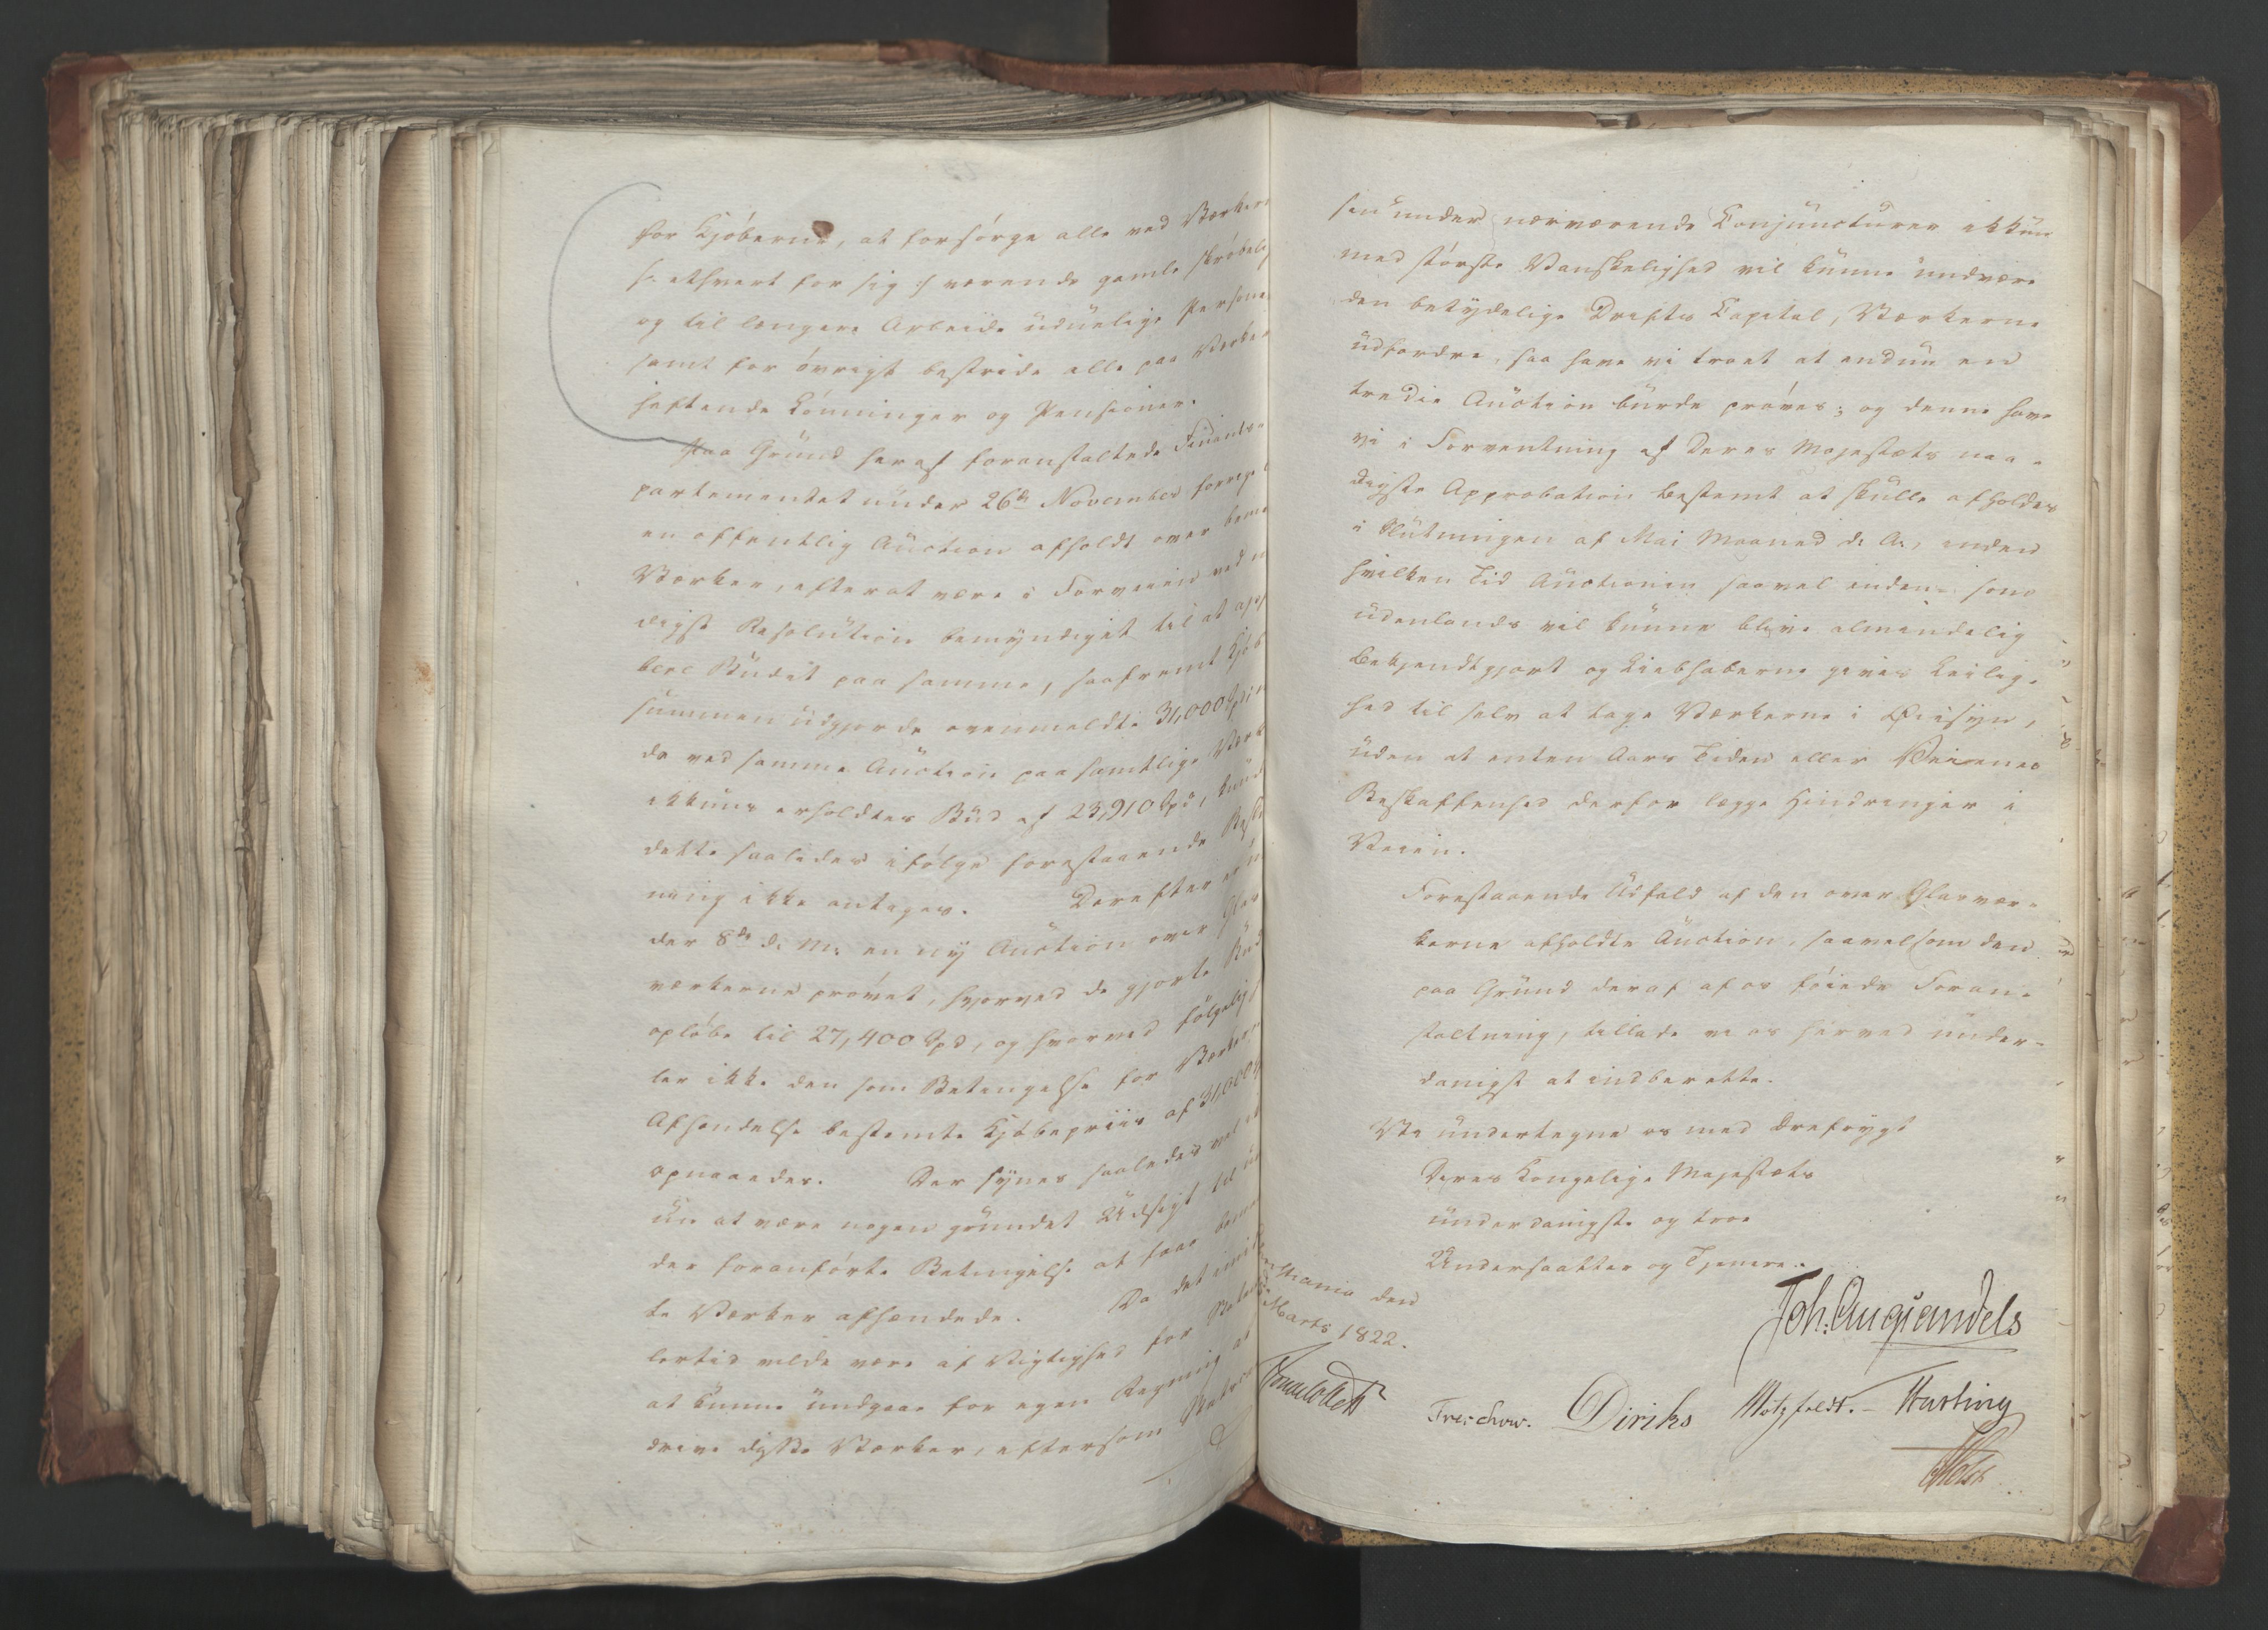 for Kjöberne, at forsörge alle ved Værkern
/: ethvert for sig :/ værende gamle skröbelig
og til længere Arbeide üdüelige Persone
samt for övrigt bestride alle paa Værker
heftende Lönninger og Pensioner.
Paa Gründ heraf foranstaltede Finants-
partementet ünder 26de November forrige
en offentlig Aüction afholdt over bem
Værker, efter at være i Forveien ved n
digst Resolütion bemyndiget til at app
bere Büdet paa samme, saafremt Kjöb
sümmen üdgjorde ovenmeldte 31,000 Spd;
da ved samme Aüction paa samtlige Værk
ikküns erholdtes Büd af 23,910 Spd, künde
dette saaledes ifölge forestaaende Besti
ning ikke antages. Derefter er ün
der 8de d: M: en ny Aüction over Glas
værkerne prövet, hvorved de gjorte Büd
oplöbe til 27,400 Spd, og hvorved fölgelig
ler ikke den som Betingelse for Værkern
Afhændelse bestemte Kjöbepriis af 31,000 Sp
opnaaedes. Der synes saaledes vel ei
ün at være nogen gründet Üdsigt til ün
der foranförte Betingelse at faae bem
te Værker afhændede. Da det imid
lertid vilde være af Vigtighed for Staten
at künne ündgaae for egen Regning at
drive disse Værker, eftersom Statscas
sen ünder nærværende Conjüncturer ikkün
med störste Vanskelighed vil künne ündvære
den betydelige Drifts Capital, Værkerne
üdfordre, saa have vi troet at endnü een
tredie Aüction bürde pröves; og denne have
vi i Forventning af Deres Majestæts naa-
digste Approbation bestemt at skülle afholdes
i Slütningen af Mai Maaned d: A:, inden
hvilken Tid Aüctionen saavel inden- som
üdenlands vil künne blive almindelig
bekjendtgjort og Liebhaberne gives Leilig-
hed til selv at tage Værkerne i Öiesyn,
üden at enten Aars Tiden eller Veienes
Beskaffenhed derfor lægge Hindringer i
Veien.
Forestaaende Üdfald af den over Glasvær-
kerne afholdte Aüction, saavelsom den
paa Gründ deraf af os föiede Foran-
staltning, tillade vi os herved ünder-
danigst at indberette.
Vi ündertegne os med Ærefrygt
Deres Kongelige Majestæts
ünderdanigste og troe
Undersaatter og Tjenere.
stiania den
Marts 1822.
Joh: Aug Sandels
Jonas Collett
Treschow. Diriks Motzfeldt. Fasting
Holst